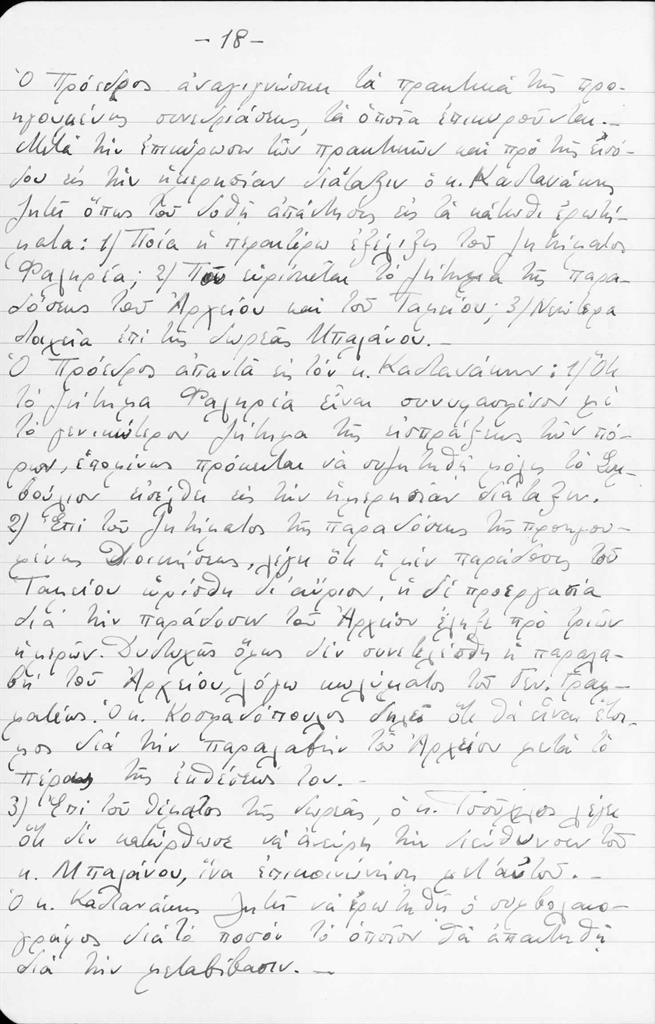 -18-
Ὁ Πρόεδρος ἀναγιγνώσκει τὰ πρακτικὰ τῆς προ-
ηγουμένης συνεδριάσεως, τὰ ὁποῖα ἐπικυροῦνται.-
Μετὰ τὴν ἐπικύρωσιν τῶν πρακτικῶν καὶ πρὸ τῆς εἰσό-
δου εἰς τὴν ἡμερησίαν διάταξιν ὁ κ. Καστανάκης
ζητεῖ ὅπως τοῦ δοθῇ ἀπάντησις εἰς τὰ κάτωθι ἐρωτή-
ματα: 1) Ποία ἡ περαιτέρω ἐξέλιξις τοῦ ζητήματος
Φαληρέα; 2) Ποῦ εὑρίσκεται τὸ ζήτημα τῆς παρα-
δόσεως τοῦ Ἀρχείου καὶ τοῦ Ταμείου; 3) Νεώτερα
στοιχεῖα ἐπὶ τῆς δωρεᾶς Μπαλάνου.-
Ὁ Πρόεδρος ἀπαντᾷ εἰς τὸν κ. Καστανάκην: 1) Ὅτι
τὸ ζήτημα Φαληρέα εἶναι συνυφασμένον μὲ
τὸ γενικώτερον ζήτημα τῆς εἰσπράξεως τῶν πό-
ρων, ἑπομένως πρόκειται νὰ συζητηθῇ μόλις τὸ Συμ-
βούλιον εἰσέλθῃ εἰς τὴν ἡμερησίαν διάταξιν.
2) Ἐπὶ τοῦ ζητήματος τῆς παραδόσεως τῆς προηγου-
μένης Διοικήσεως, λέγει ὅτι ἡ μὲν παράδοσις τοῦ
Ταμείου ὡρίσθη δι' αὔριον, ἡ δὲ προεργασία
διὰ τὴν παράδοσιν τοῦ Ἀρχείου ἔληξε πρὸ τριῶν
ἡμερῶν. Δυστυχῶς ὅμως δὲν συνετελέσθη ἡ παραλα-
βὴ τοῦ Ἀρχείου, λόγω κωλύματος τοῦ Γεν. Γραμ-
ματέως. Ὁ κ. Κοσμαδόπουλος δηλοῖ ὅτι θὰ εἶναι ἕτοι-
μος διὰ τὴν παραλαβὴν τοῦ Ἀρχείου μετὰ τὸ
πέρας τῆς ἐκθέσεώς του.-
3) Ἐπὶ τοῦ θέματος τῆς δωρεᾶς, ὁ κ. Τσούχλος λέγει
ὅτι δὲν κατώρθωσε νὰ ἀνεύρῃ τὴν διεύθυνσιν τοῦ
κ. Μπαλάνου, ἵνα ἐπικοινωνήσῃ μετ' αὐτοῦ.-
Ὁ κ. Καστανάκης ζητεῖ νὰ ἐρωτηθῇ ὁ συμβολαιο-
γράφος διὰ τὸ ποσὸν τὸ ὁποῖον θὰ ἀπαιτηθῇ
διὰ τὴν μεταβίβασιν.-